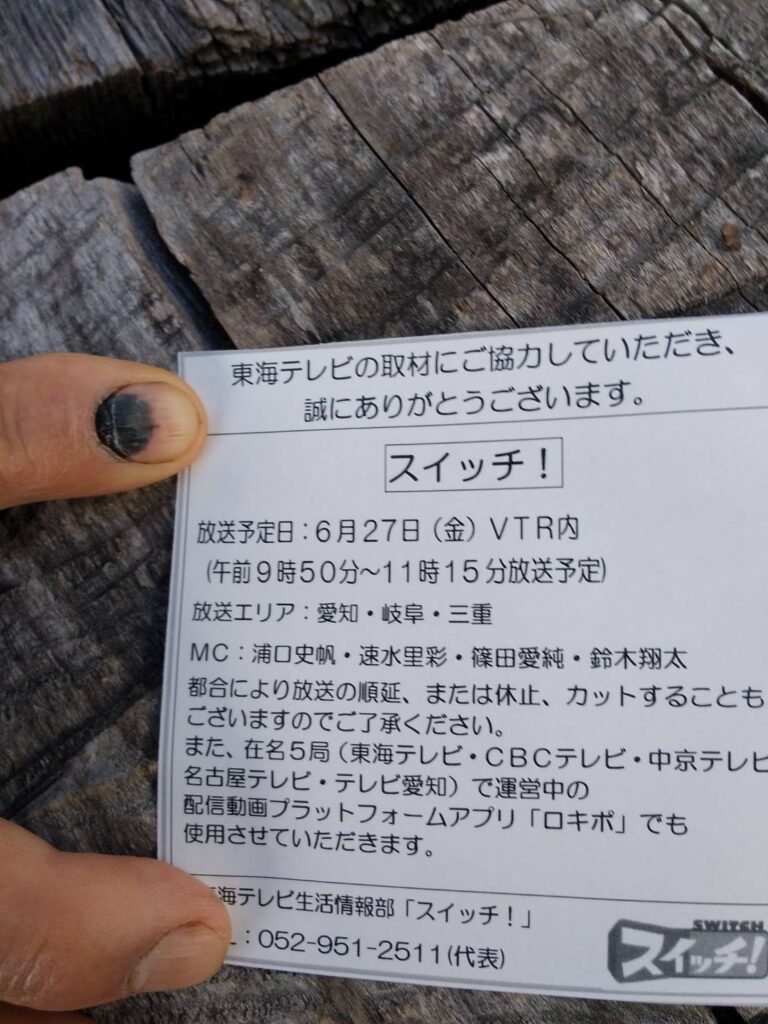 東海テレビの取材にご協力していただき、
誠にありがとうございます。
スイッチ！
放送予定日：6月27日（金）VTR内
（午前9時50分～11時15分放送予定）
放送エリア：愛知・岐阜・三重
MC：浦口史帆・速水里彩・篠田愛純・鈴木翔太
都合により放送の順延、または休止、カットすることも
ございますのでご了承ください。
また、在名5局（東海テレビ・CBCテレビ・中京テレビ
名古屋テレビ・テレビ愛知）で運営中の
配信動画プラットフォームアプリ「ロキポ」でも
使用させていただきます。
海テレビ生活情報部「スイッチ！」
L：052-951-2511(代表)
SWITCH
スイッチ!